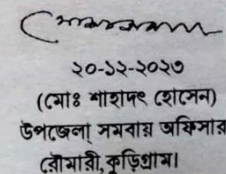 ২০-১২-২০২৩
(মোঃ শাহাদৎ হোসেন)
উপজেলা সমবায় অফিসার
রৌমারী, কুড়িগ্রাম।